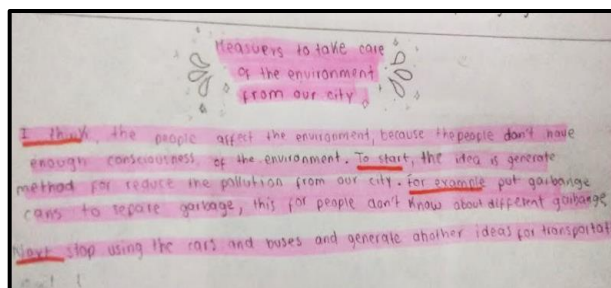 Measuers to take care
of the environment
from our city
I think, the people affect the environment, because the people don't have
enough consciousness, of the environment. To start, the idea is generate
method for reduce the pollution from our city. For example put garbange
cans to separe garbage, this for people don't know about different garbange,
Next stop using the cars and buses and generate another ideas for transportat